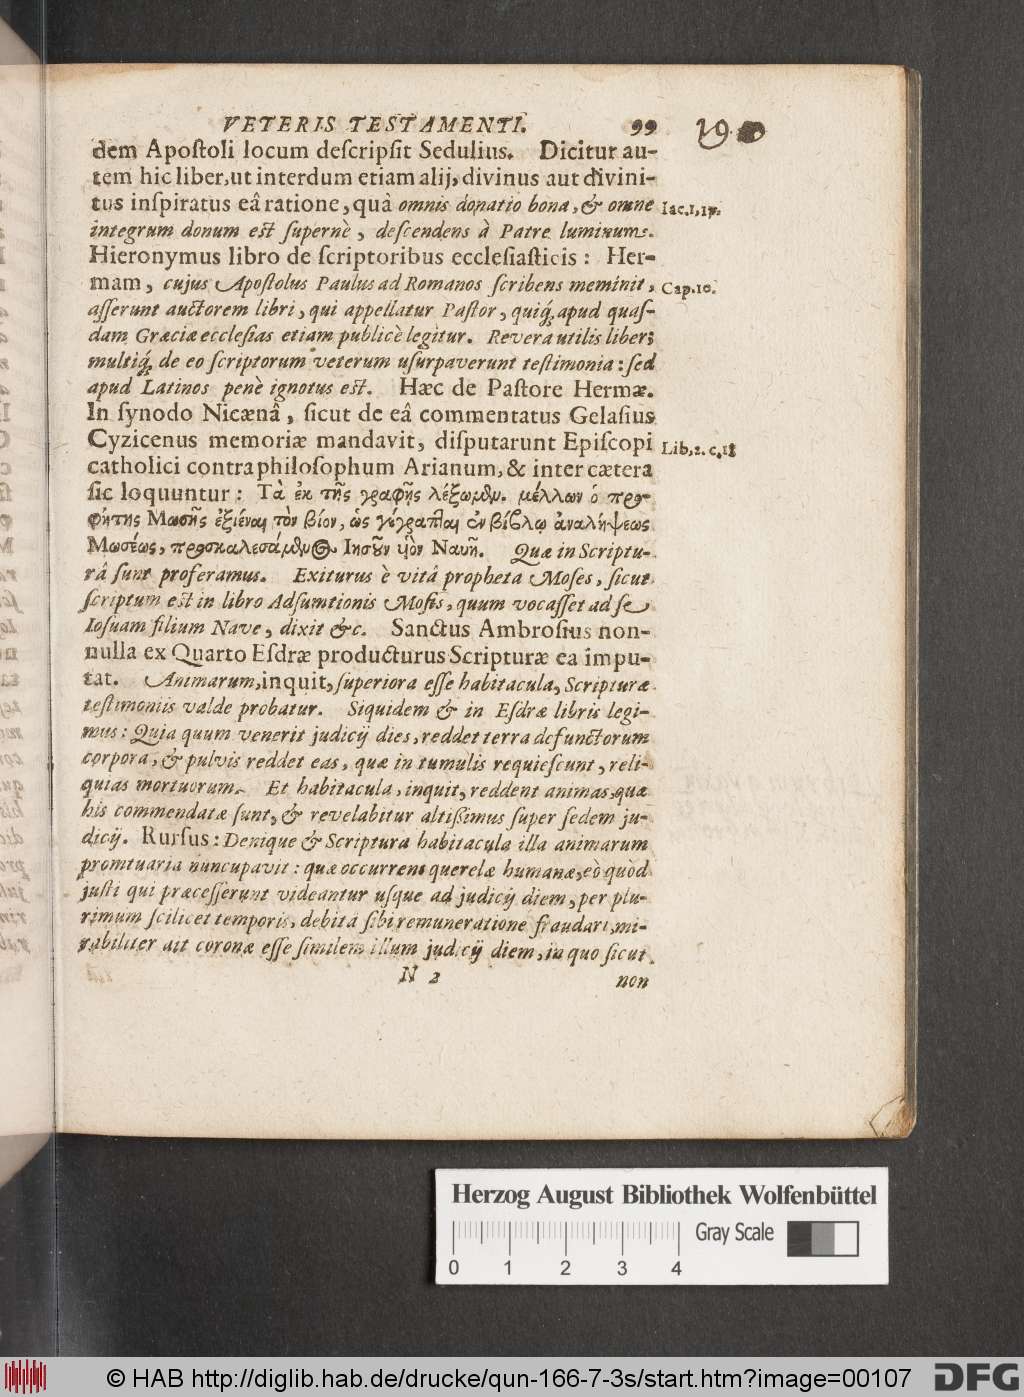 VETERIS TESTAMENTI. 99
19
dem Apoſtoli locum deſcripſit Sedulius. Dicitur au-
tem hic liber, ut interdum etiam alij, divinus aut divini-
tus inſpiratus eâ ratione, quà omnis donatio bona, & omne Iac. 1, 17.
integrum donum est ſupernè, deſcendens à Patre luminum.
Hieronymus libro de ſcriptoribus eccleſiaſticis: Her-
mam, cujus Apoſtolus Paulus ad Romanos ſcribens meminit, Cap. 10.
aſſerunt auctorem libri, qui appellatur Paſtor, quiq́, apud quaſ-
dam Græciæ eccleſias etiam publicè legitur. Revera utilis liber;
multiq́, de eo ſcriptorum veterum uſurpaverunt teſtimonia: ſed
apud Latinos penè ignotus est. Hæc de Paſtore Hermæ.
In ſynodo Nicænâ, ſicut de eâ commentatus Gelaſius
Cyzicenus memoriæ mandavit, diſputarunt Epiſcopi Lib. 2. c. 18
catholici contra philoſophum Arianum, & inter cætera
ſic loquuntur: Τὰ ἐκ τῆς γραφῆς λέξωμθν. μέλλων ὁ προ-
φήτης Μωσῆς ἐξιέναι τὸν βίον, ὡς γέγραπται ἐν βίβλῳ ἀναλήψεως
Μωσέως, προσκαλεσάμθνος Ιησοῦν υἱὸν Ναυῆ. Quæ in Scriptu-
râ ſunt proferamus. Exiturus è vitâ propheta Moſes, ſicut
ſcriptum est in libro Adſumtionis Moſis, quum vocaſſet ad ſe
Ioſuam filium Nave, dixit &c. Sanctus Ambroſius non-
nulla ex Quarto Eſdræ producturus Scripturæ ea impu-
tat. Animarum, inquit, ſuperiora eſſe habitacula, Scripturæ
teſtimoniis valde probatur. Siquidem & in Eſdræ libris legi-
mus: Quia quum venerit judicij dies, reddet terra defunctorum
corpora, & pulvis reddet eas, quæ in tumulis requieſcunt, reli-
quias mortuorum. Et habitacula, inquit, reddent animas, quæ
his commendatæ ſunt, & revelabitur altiſſimus ſuper ſedem ju-
dicij. Rurſus: Denique & Scriptura habitacula illa animarum
promtuaria nuncupavit: quæ occurrens querelæ humanæ, eò quòd
juſti qui præceſſerunt videantur uſque ad judicij diem, per plu-
rimum ſcilicet temporis, debitâ ſibi remuneratione fraudari, mi-
rabiliter ait coronæ eſſe ſimilem illum judicij diem, in quo ſicut
N 2 non
Herzog August Bibliothek Wolfenbüttel
Gray Scale
0 1 2 3 4
© HAB http://diglib.hab.de/drucke/qun-166-7-3s/start.htm?image=00107
DFG